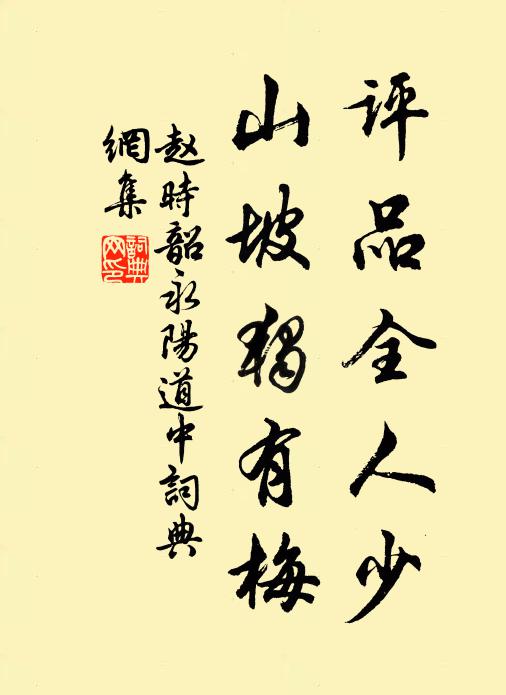 评品全人少
山坡独有梅
赵时韶永陽道中詞典
網集
詞典网印